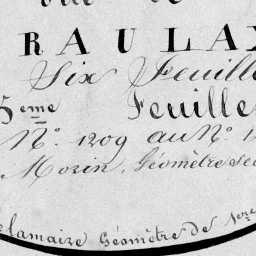 RAULA
Six Feuille
5eme Feuille
No. 1209 au No. 1
Morin, Géomètre
lamaire Géomètre de 1ere